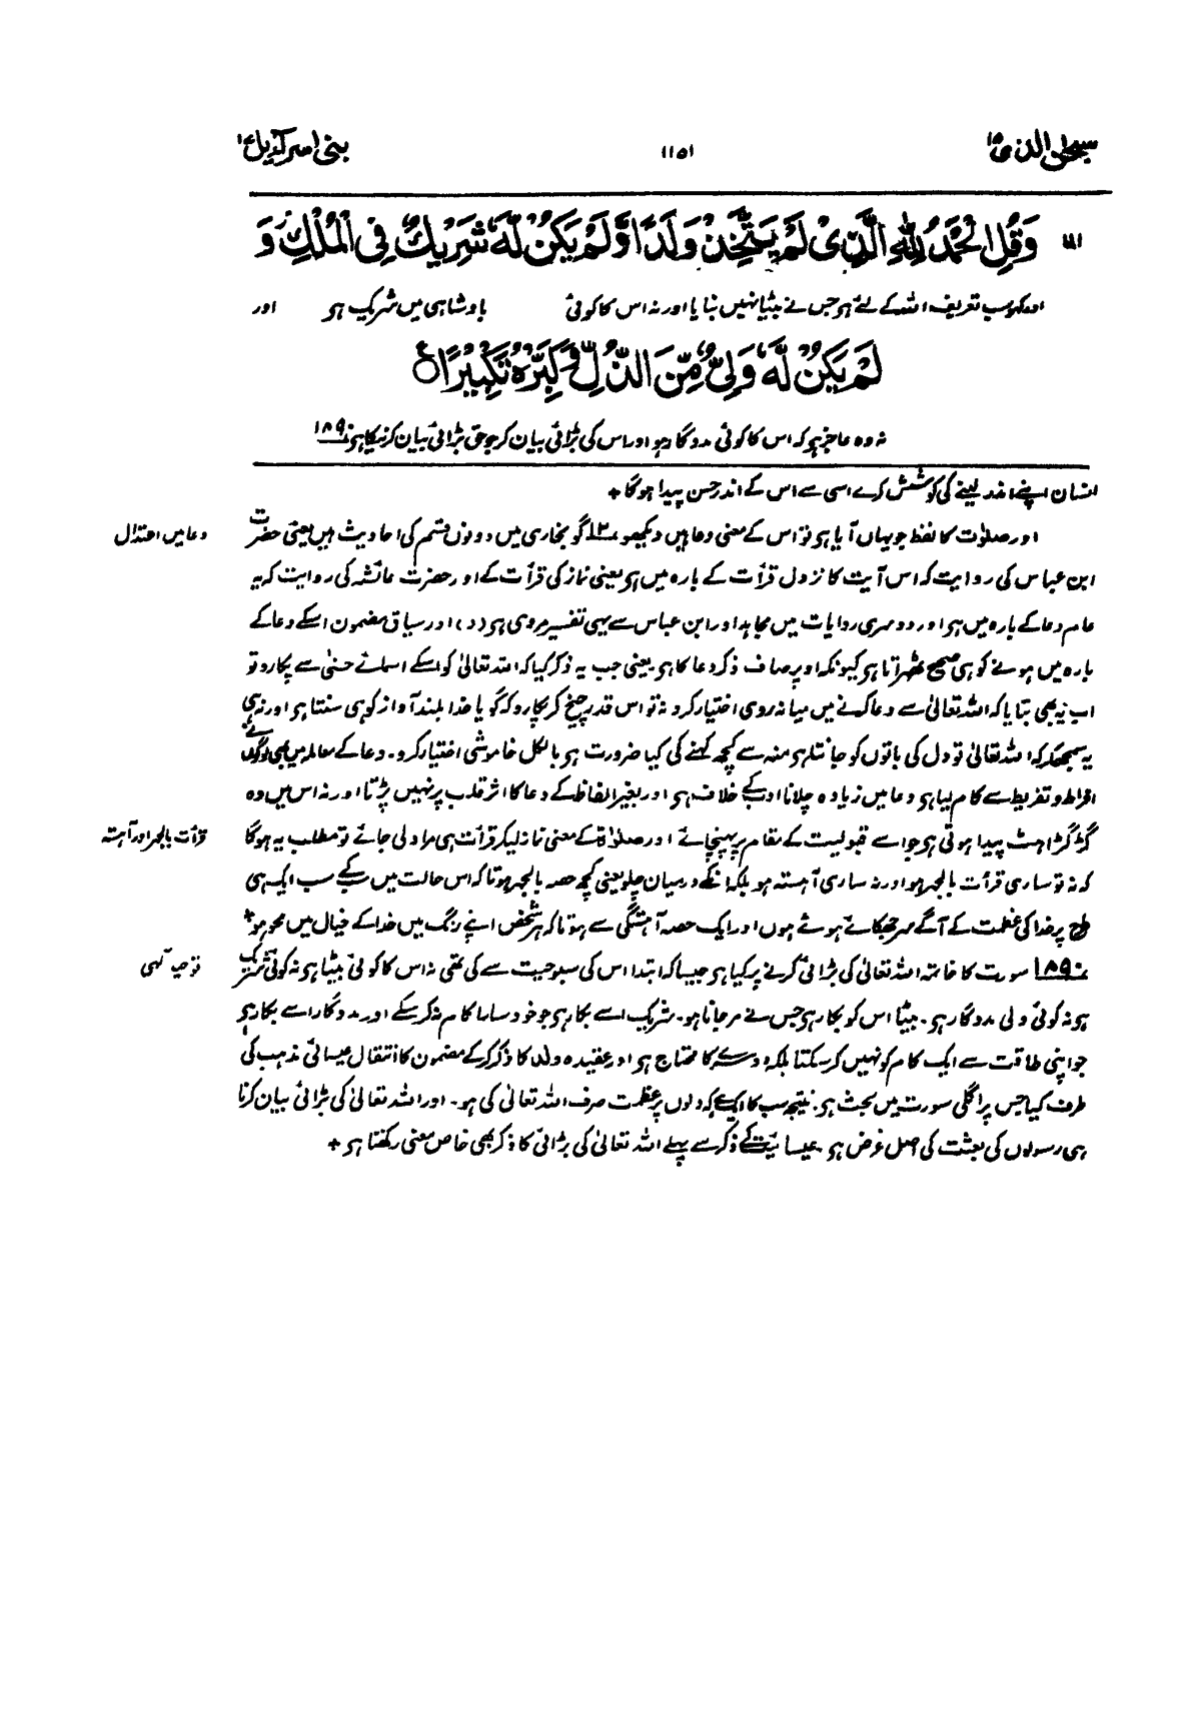 سبحٰن الذی ۱۵
۱۱۵۱
بنی اسرآءیل ۱۷
۱۱۱ وَقُلِ الْحَمْدُ لِلّٰهِ الَّذِىْ لَمْ يَتَّخِذْ وَلَدًا وَّلَمْ يَكُنْ لَّهٗ شَرِيْكٌ فِى الْمُلْكِ وَ
اور کہو سب تعریف اللہ کے لئے ہو جس نے بیٹا نہیں بنایا اور نہ اس کا کوئی بادشاہی میں شریک ہو اور
لَمْ يَكُنْ لَّهٗ وَلِىٌّ مِّنَ الذُّلِّ وَكَبِّرْهُ تَكْبِيْرًا ع
نہ وہ عاجز ہو کہ اس کا کوئی مددگار ہو اور اس کی بڑائی بیان کر جو حق بڑائی بیان کرنیکا ہو ۱۸۹۰
انسان اپنے اندر لینے کی کوشش کرے اسی سے اس کے اندر حسن پیدا ہوگا +
دعا میں اعتدال
اور صلوٰت کا لفظ جو یہاں آیا ہو تو اس کے معنی دعا ہیں دیکھو گو بخاری میں دونوں قسم کی احادیث ہیں یعنی حضرت
ابن عباس کی روایت کہ اس آیت کا نزول قرأت کے بارہ میں ہو یعنی نماز کی قرأت کے اور حضرت عائشہ کی روایت کہ یہ
عام دعا کے بارہ میں ہو اور دوسری روایات میں مجاہد اور ابن عباس سے یہی تفسیر مروی ہو (د) اور سیاق مضمون اسکے دعا کے
بارہ میں ہونے کو ہی صحیح ٹھہراتا ہو کیونکہ اوپر صاف ذکر دعا کا ہو یعنی جب یہ ذکر کیا کہ اللہ تعالیٰ کو اسکے اسمائے حسنیٰ سے پکارو تو
اب یہ بھی بتایا کہ اللہ تعالیٰ سے دعا کرنے میں میانہ روی اختیار کرو نہ تو اس قدر چیخ کر پکارو کہ گویا خدا بلند آواز کو ہی سنتا ہو اور نہ ہی
یہ سمجھکر کہ اللہ تعالیٰ تو دل کی باتوں کو جانتا ہو منہ سے کچھ کہنے کی کیا ضرورت ہو بالکل خاموشی اختیار کرو۔ دعا کے معاملہ میں بھی لوگوں نے
افراط و تفریط سے کام لیا ہو دعا میں زیادہ چلانا ادب کے خلاف ہو اور بغیر الفاظ کے دعا کا اثر قلب پر نہیں پڑتا اور نہ اس میں وہ
قرأت بالجہر اور آہستہ
گڑگڑاہٹ پیدا ہوتی ہو جو اسے قبولیت کے مقام پر پہنچائے اور صلوٰۃ کے معنی نماز لیکر قرأت ہی مراد لی جائے تو مطلب یہ ہوگا
کہ نہ تو ساری قرأت بالجہر ہو اور نہ ساری آہستہ ہو بلکہ انکے درمیان چلو یعنی کچھ حصہ بالجہر ہو تا کہ اس حالت میں سب کے سب ایک ہی
طرح پر خدا کی عظمت کے آگے سر جھکائے ہوئے ہوں اور ایک حصہ آہستگی سے ہو تا کہ ہر شخص اپنے رنگ میں خدا کے خیال میں محو ہو +
توحید الٰہی
۱۸۹۰ سورت کا خاتمہ اللہ تعالیٰ کی بڑائی کرنے پر کیا ہو جیسا کہ ابتدا اس کی سبوحیت سے کی تھی نہ اس کا کوئی بیٹا ہو نہ کوئی شریک
ہو نہ کوئی ولی مددگار ہو۔ بیٹا اس کو بکار ہو جس نے مرجانا ہو۔ شریک اسے بکار ہو جو خود سارا کام نہ کرسکے اور مددگار اسے بکار ہو
جو اپنی طاقت سے ایک کام کو نہیں کرسکتا بلکہ دوسرے کا محتاج ہو اور عقیدہ ولد کا ذکر کرکے مضمون کا انتقال عیسائی مذہب کی
طرف کیا جس پر اگلی سورت میں بحث ہو۔ نتیجہ سب کا ایک ہے کہ دلوں پر عظمت صرف اللہ تعالیٰ کی ہو۔ اور اللہ تعالیٰ کی بڑائی بیان کرنا
ہی رسولوں کی بعثت کی اصل غرض ہو عیسائیت کے ذکر سے پہلے اللہ تعالیٰ کی بڑائی کا ذکر بھی خاص معنی رکھتا ہو +